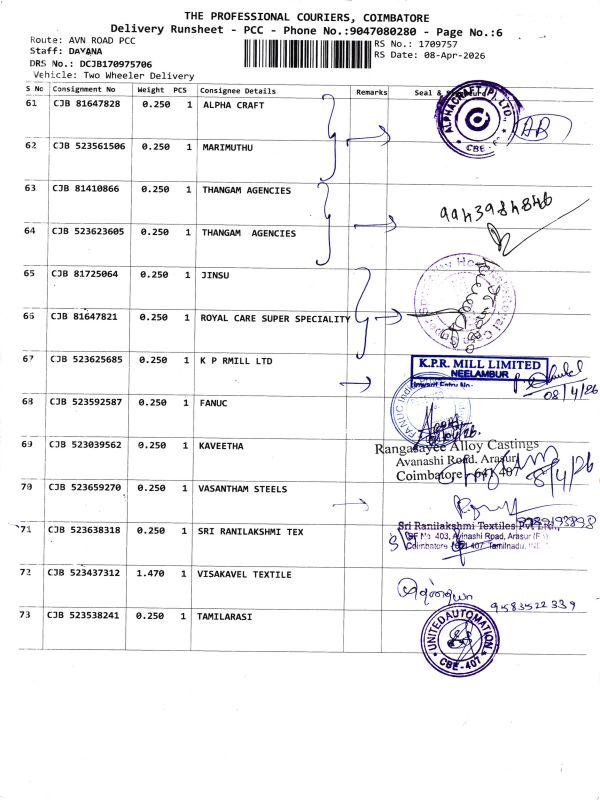 THE PROFESSIONAL COURIERS, COIMBATORE
Delivery Runsheet - PCC - Phone No.:9047080280 - Page No.:6
Route: AVN ROAD PCC
Staff: DAYANA
DRS No.: DCJB170975706
Vehicle: Two Wheeler Delivery
RS No.: 1709757
RS Date: 08-Apr-2026
S No Consignment No Weight PCS Consignee Details Remarks Seal &
61 CJB 81647828 0.250 1 ALPHA CRAFT
ALPHACRAFT (P) LTD.,
CBE
AB
62 CJB 523561506 0.250 1 MARIMUTHU
63 CJB 81410866 0.250 1 THANGAM AGENCIES
9943984846
64 CJB 523623605 0.250 1 THANGAM AGENCIES
65 CJB 81725064 0.250 1 JINSU
66 CJB 81647821 0.250 1 ROYAL CARE SUPER SPECIALITY
67 CJB 523625685 0.250 1 K P RMILL LTD
K.P.R. MILL LIMITED
NEELAMBUR
Inward Entry No.
08/4/26
68 CJB 523592587 0.250 1 FANUC
FANUC
69 CJB 523039562 0.250 1 KAVEETHA
Rangasayee Alloy Castings
Avanashi Road, Arasur
Coimbatore - 641 407
8/4/26
70 CJB 523659270 0.250 1 VASANTHAM STEELS
71 CJB 523638318 0.250 1 SRI RANILAKSHMI TEX
Sri Ranilakshmi Textiles Pvt Ltd.,
SF No. 403, Avinashi Road, Arasur (P.o)
Coimbatore 641 407. Tamilnadu,
72 CJB 523437312 1.470 1 VISAKAVEL TEXTILE
9583522339
73 CJB 523538241 0.250 1 TAMILARASI
UNITED AUTOMATION
CBE-407